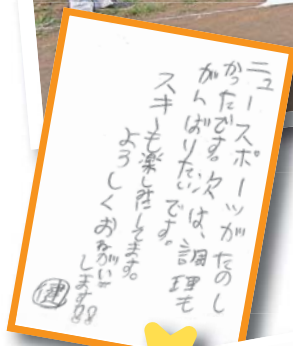 ニュースポーツがたのし
かったです。次は、調理も
がんばりたいです。
スキーも楽しみにしてます。
よろしくおねがい
します!!
健